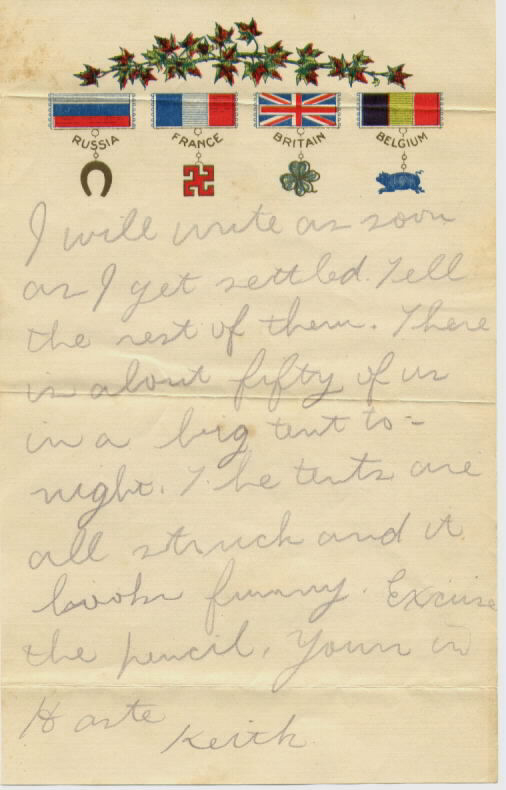 RUSSIA FRANCE BRITAIN BELGIUM
I will write as soon
as I get settled. Tell
the rest of them. There
is about fifty of us
in a big tent to-
night. The tents are
all struck and it
looks funny. Excuse
the pencil. Yours in
Haste
Keith